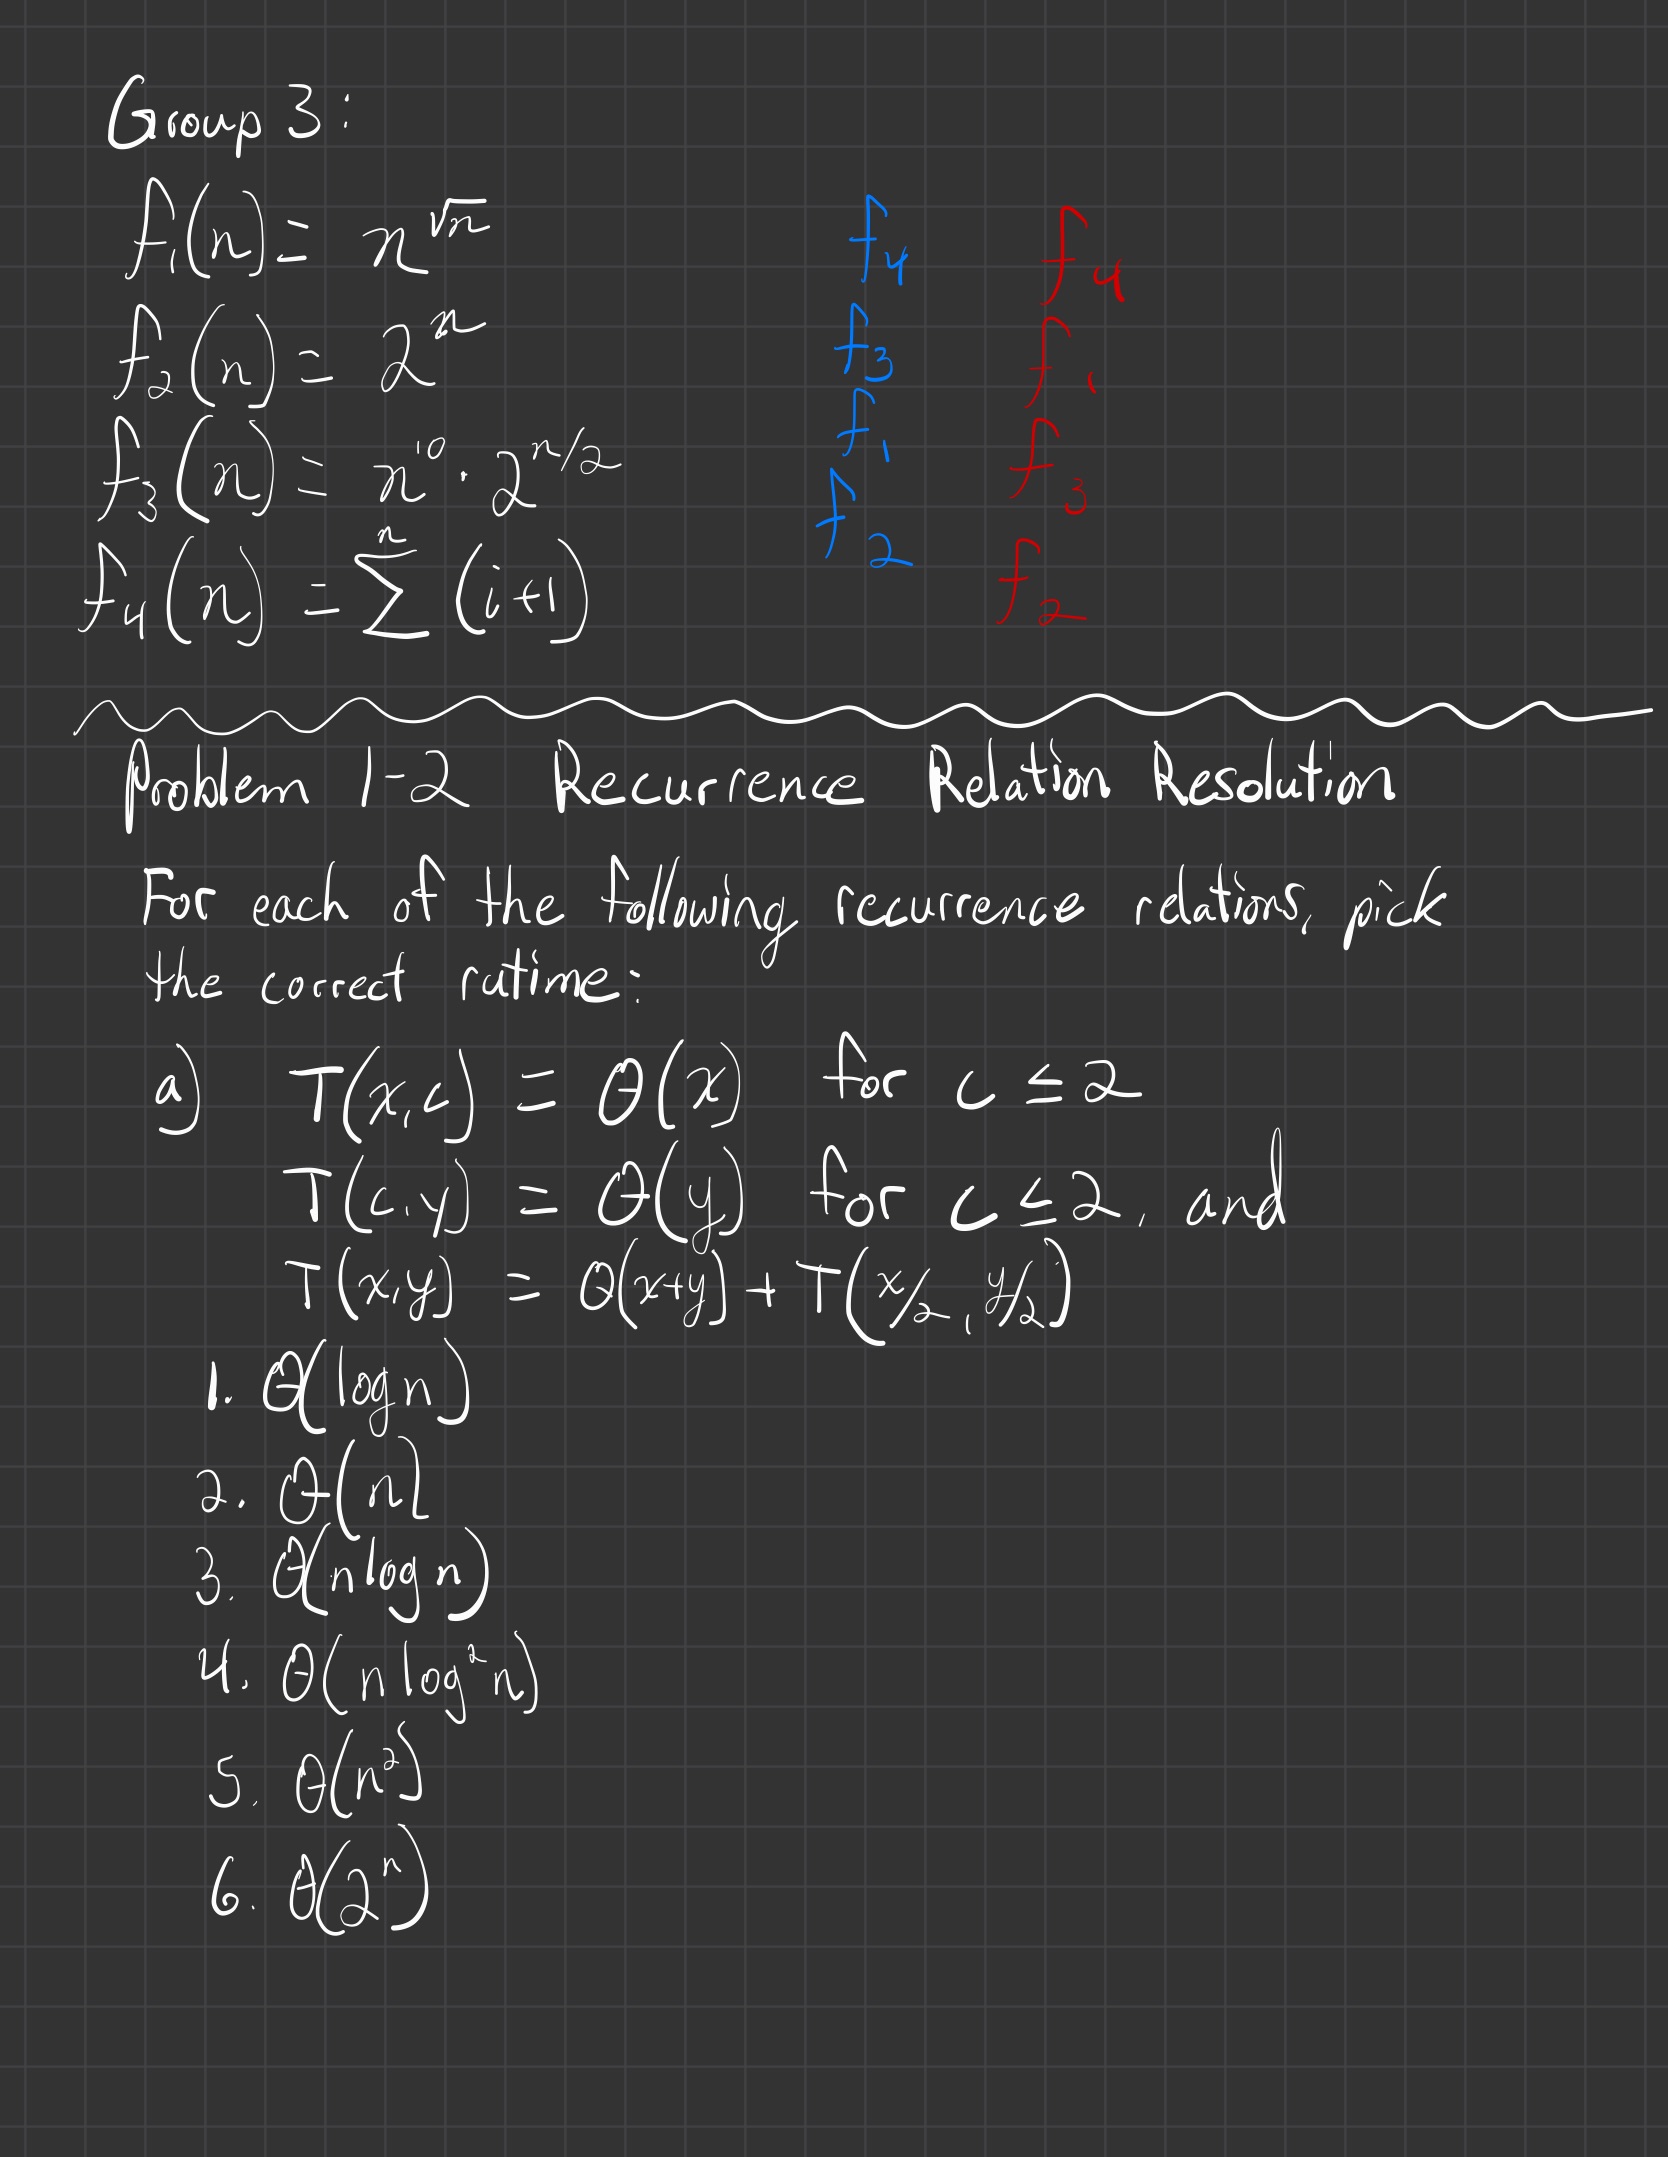 Group 3:
f₁(n) = n^√n
f₂(n) = 2^n
f₃(n) = n^10 · 2^(n/2)
f₄(n) = ∑^n (i+1)
f₄
f₃
f₁
f₂
f₄
f₁
f₃
f₂
Problem 1-2 Recurrence Relation Resolution
For each of the following recurrence relations, pick
the correct rutime:
a) T(x,c) = Θ(x) for c ≤ 2
T(c,y) = Θ(y) for c ≤ 2, and
T(x,y) = Θ(x+y) + T(x/2, y/2)
1. Θ(log n)
2. Θ(n)
3. Θ(n log n)
4. Θ(n log² n)
5. Θ(n²)
6. Θ(2^n)